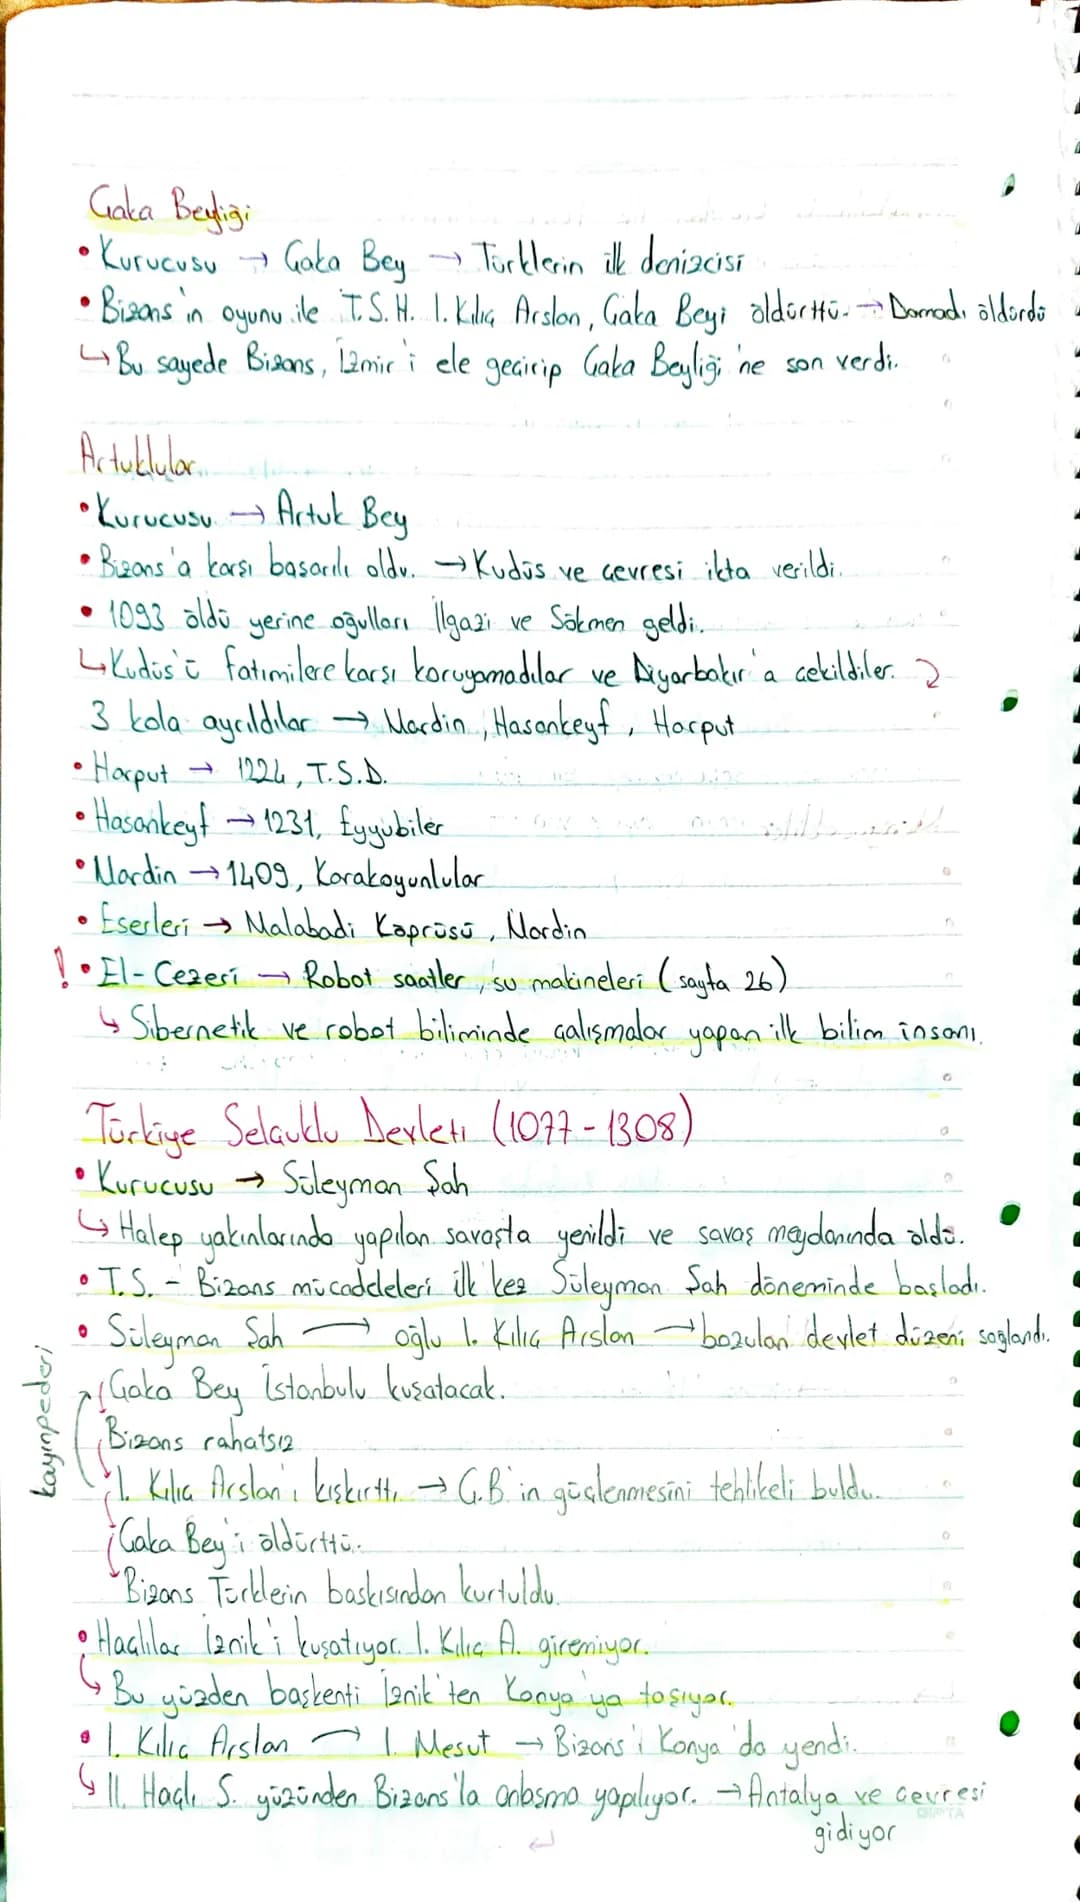 Çaka Beyliği
• Kurucusu → Çaka Bey → Türklerin ilk denizcisi
• Bizans'ın oyunu ile T.S.H. I. Kılıç Arslan, Çaka Beyi öldürttü. → Damadı öldürdü
↳ Bu sayede Bizans, İzmir'i ele geçirip Çaka Beyliği'ne son verdi.
Artuklular
• Kurucusu → Artuk Bey
• Bizans'a karşı başarılı oldu. → Kudüs ve çevresi ikta verildi.
• 1093 öldü yerine oğulları İlgazi ve Sökmen geldi.
↳ Kudüs'ü fatımilere karşı koruyamadılar ve Diyarbakır'a çekildiler.
3 kola ayrıldılar → Mardin, Hasankeyf, Harput
• Harput → 1224, T.S.D.
• Hasankeyf → 1231, Eyyubiler
• Mardin → 1409, Karakoyunlular
• Eserleri → Malabadi Köprüsü, Mardin
! • El-Cezeri → Robot saatler, su makineleri (sayfa 26)
↳ Sibernetik ve robot biliminde çalışmalar yapan ilk bilim insanı.
Türkiye Selçuklu Devleti (1077-1308)
• Kurucusu → Süleyman Şah
↳ Halep yakınlarında yapılan savaşta yenildi ve savaş meydanında öldü.
• T.S. - Bizans mücadeleleri ilk kez Süleyman Şah döneminde başladı.
• Süleyman Şah → oğlu I. Kılıç Arslan → bozulan devlet düzeni sağlandı.
kayınpederi
Çaka Bey İstanbulu kuşatacak.
Bizans rahatsız
I. Kılıç Arslan'ı kışkırttı → Ç.B.'in güçlenmesini tehlikeli buldu.
Çaka Bey'i öldürttü.
Bizans Türklerin baskısından kurtuldu.
• Haçlılar İznik'i kuşatıyor. I. Kılıç A. giremiyor.
↳ Bu yüzden başkenti İznik'ten Konya'ya taşıyor.
• I. Kılıç Arslan → I. Mesut → Bizans'ı Konya'da yendi.
↳ II. Haçlı S. yüzünden Bizans'la anlaşma yapılıyor. → Antalya ve çevresi
gidiyor